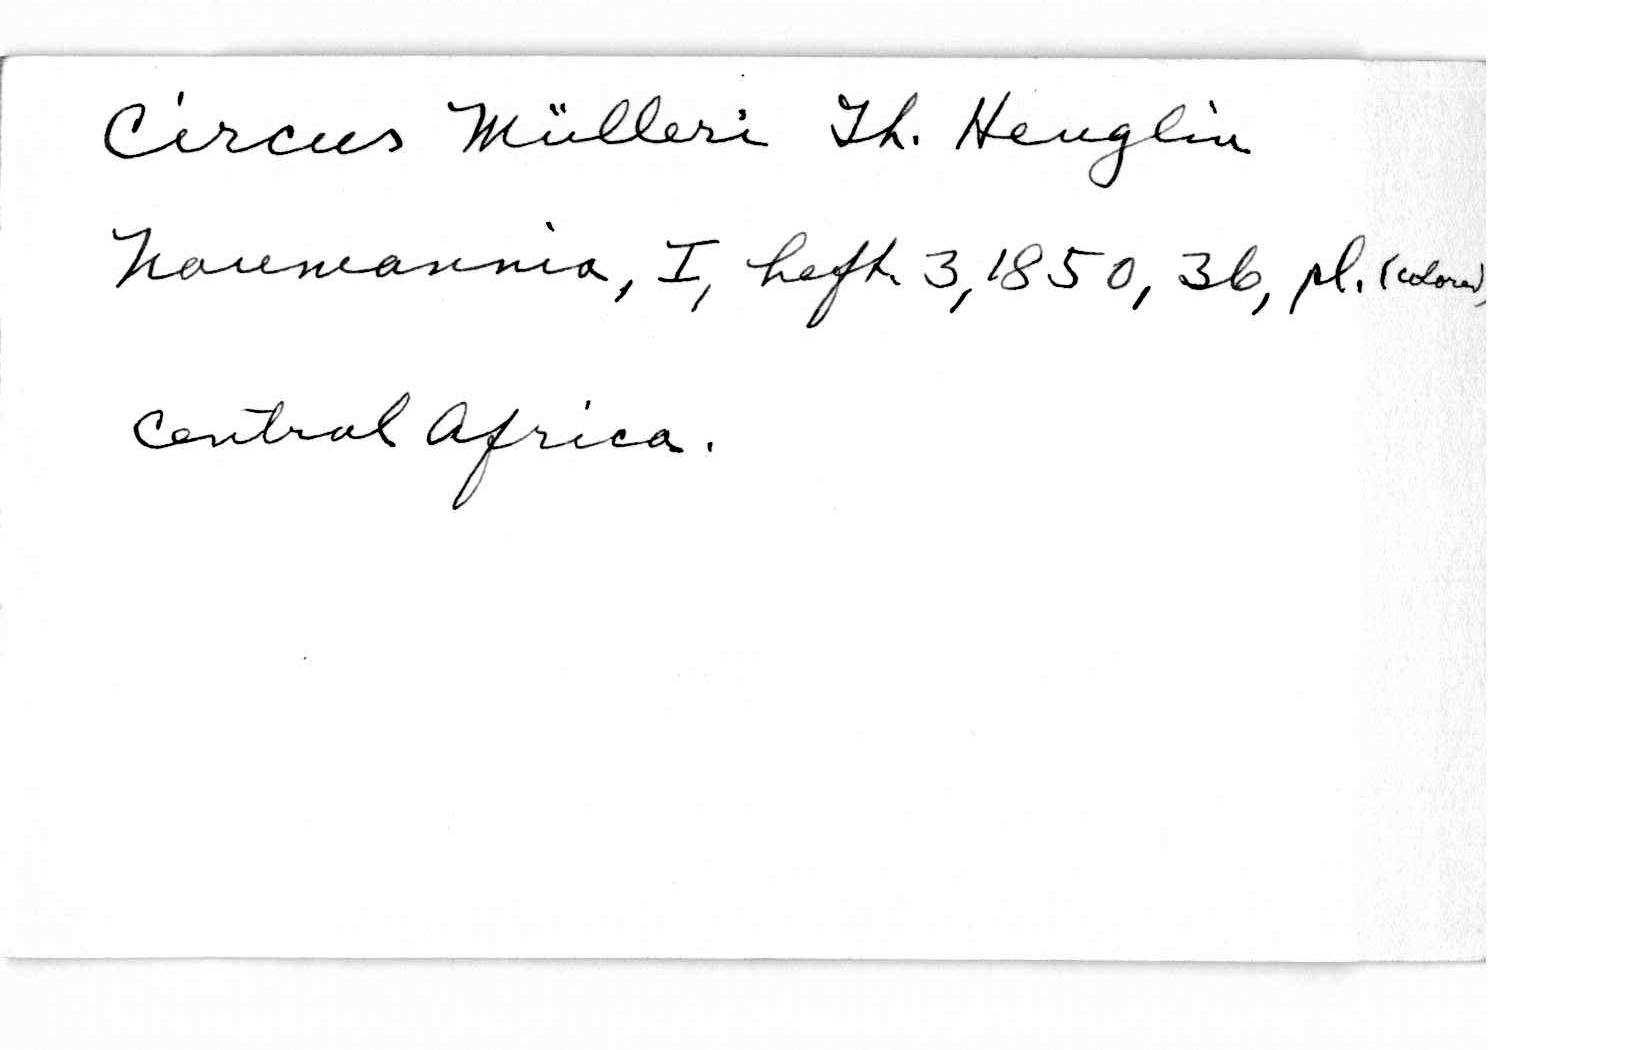 Circus Mülleri Th. Heuglin
Naumannia, I, heft. 3, 1850, 36, pl. (colored)
Central Africa.